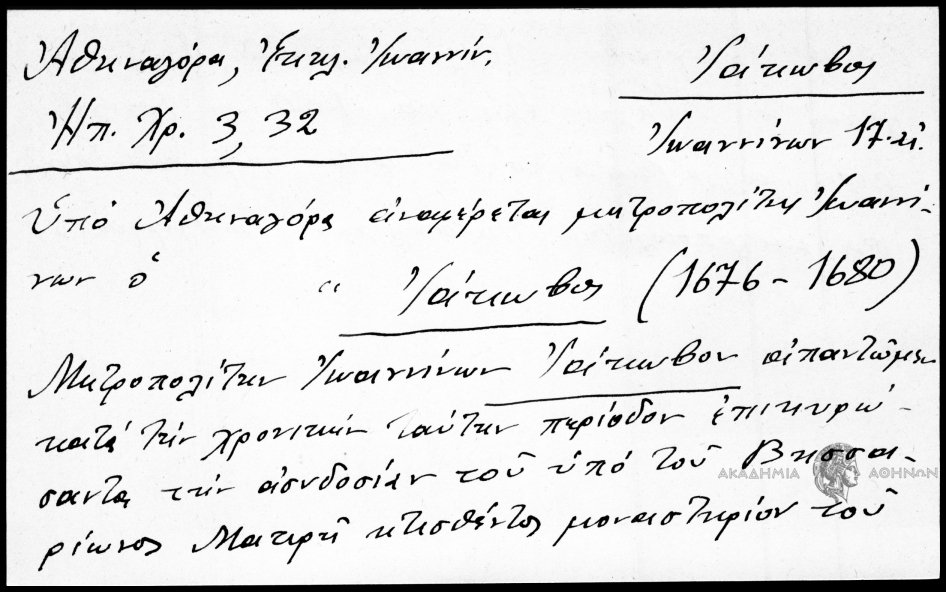 Ἀθηναγόρα, Ἐκκλ. Ἰωαννίν.
Ἠπ. Χρ. 3, 32
Ἰάκωβος
Ἰωαννίνων 17. αἰ.
Ὑπό Ἀθηναγόρα ἀναφέρεται μητροπολίτης Ἰωαννί-
νων ὁ " Ἰάκωβος (1676-1680)
Μητροπολίτην Ἰωαννίνων Ἰάκωβον ἀπαντῶμεν
κατά τήν χρονικήν ταύτην περίοδον ἐπικυρώ-
σαντα τήν ἀσυδοσίαν τοῦ ὑπό τοῦ Βησσα-
ρίωνος Μακρῆ κτισθέντος μοναστηρίου τοῦ
ΑΚΑΔΗΜΙΑ ΑΘΗΝΩΝ